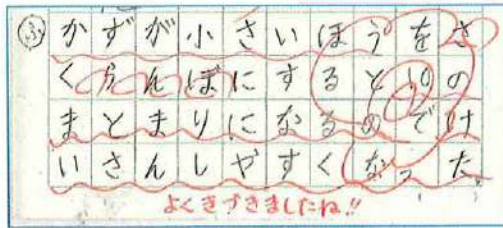 ふ かずが小さいほうをさ
くらんぼにすると10の
まとまりになるのでけ
いさんしやすくなった
よくきづきましたね!!